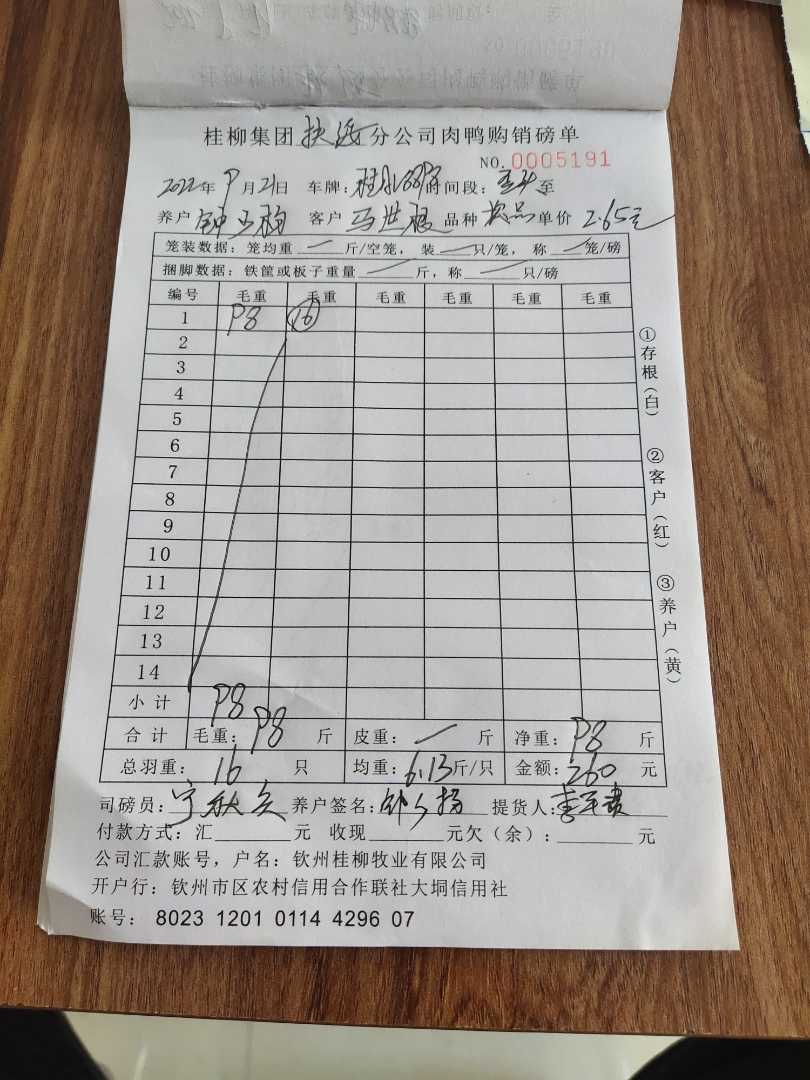 桂柳集团 扶绥 分公司肉鸭购销磅单
NO. 0005191
2022年 9月21日 车牌: 时间段: 至
养户 钟 客户 马世 品种 次品 单价 2.65元
笼装数据: 笼均重 — 斤/空笼, 装 — 只/笼, 称 — 笼/磅
捆脚数据: 铁筐或板子重量 — 斤, 称 — 只/磅
编号 毛重 毛重 毛重 毛重 毛重 毛重
1 98 16
2
3
4
5
6
7
8
9
10
11
12
13
14
小计 98
合计 毛重: 98 斤 皮重: — 斤 净重: 98 斤
总羽重: 16 只 均重: 6.13斤/只 金额: 260 元
司磅员: 宁秋 养户签名: 钟 提货人: 李
付款方式: 汇 元 收现 元欠(余): 元
公司汇款账号, 户名: 钦州桂柳牧业有限公司
开户行: 钦州市区农村信用合作联社大垌信用社
账号: 8023 1201 0114 4296 07
①存根(白)
②客户(红)
③养户(黄)